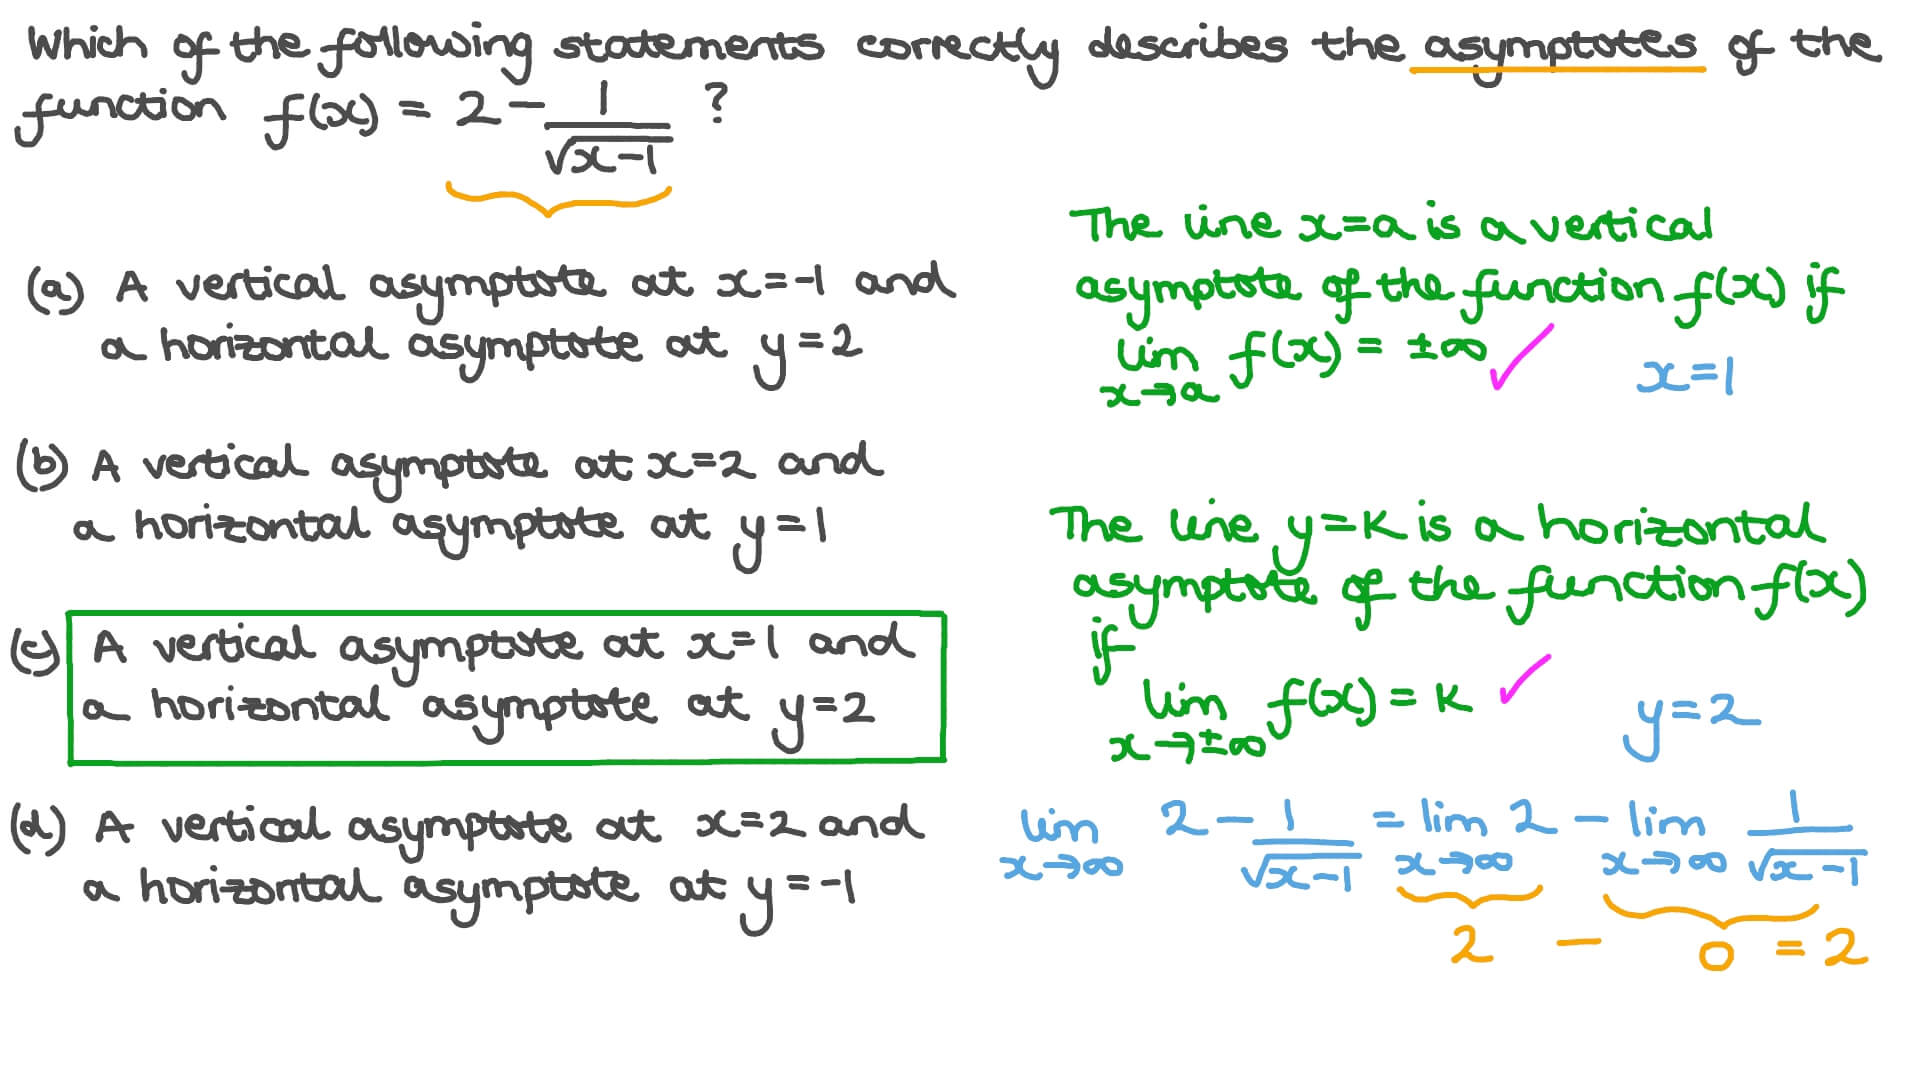 Which of the following statements correctly describes the asymptotes of the
function f(x) = 2 - 1/√(x-1) ?
(a) A vertical asymptote at x=-1 and
a horizontal asymptote at y=2
(b) A vertical asymptote at x=2 and
a horizontal asymptote at y=1
(c) A vertical asymptote at x=1 and
a horizontal asymptote at y=2
(d) A vertical asymptote at x=2 and
a horizontal asymptote at y=-1
The line x=a is a vertical
asymptote of the function f(x) if
lim x→a f(x) = ±∞ ✓ x=1
The line y=K is a horizontal
asymptote of the function f(x)
if
lim x→±∞ f(x) = K ✓ y=2
lim x→∞ 2 - 1/√(x-1) = lim x→∞ 2 - lim x→∞ 1/√(x-1)
2 - 0 = 2